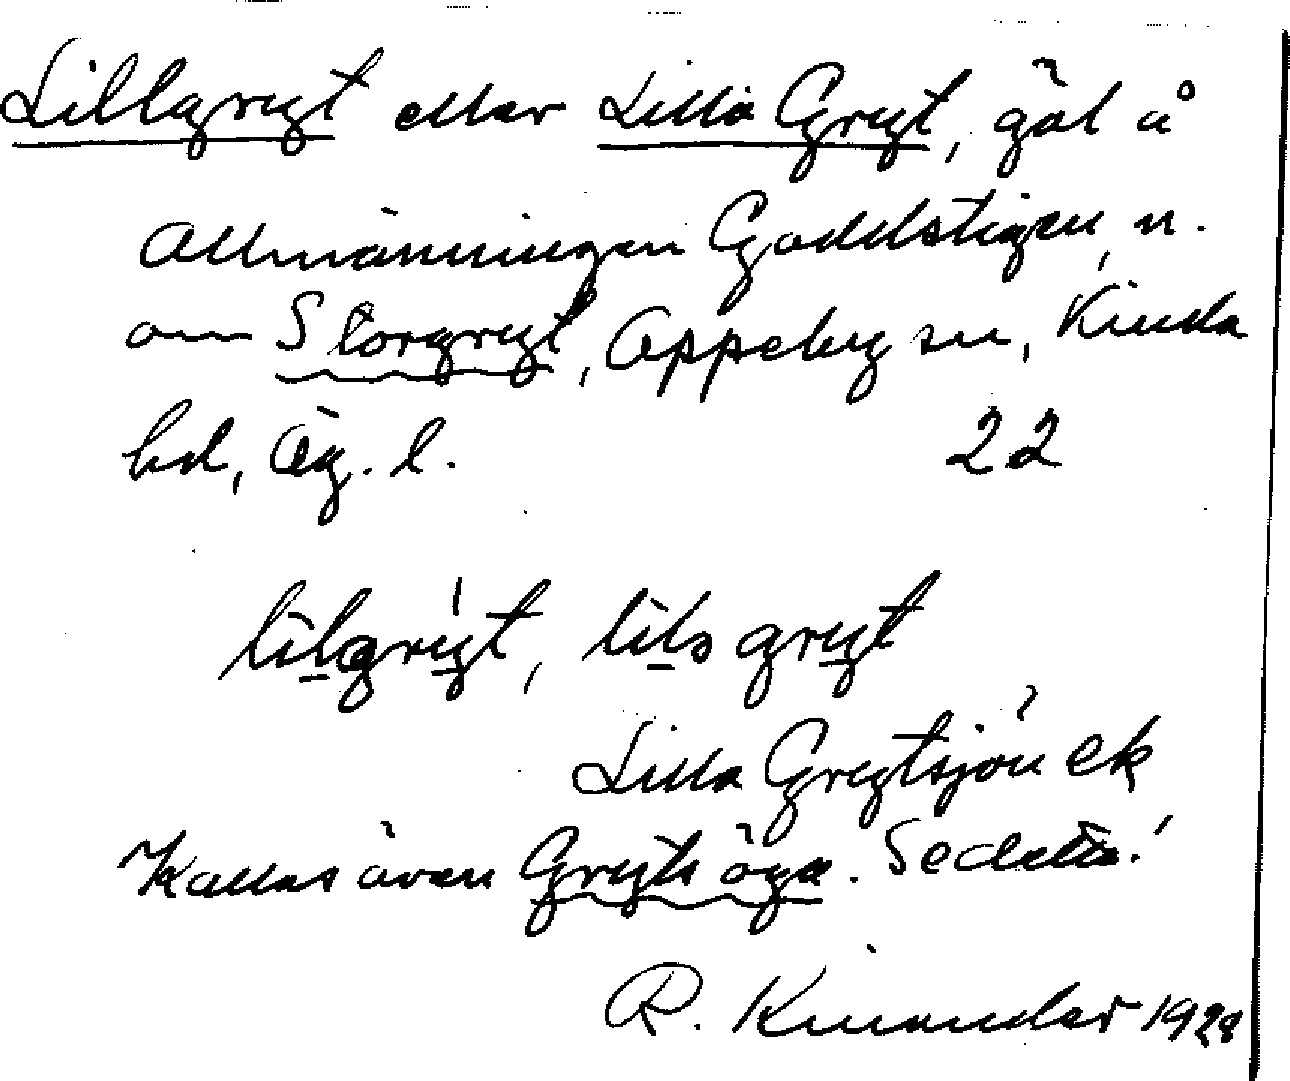 Lillgryt eller Lilla Gryt, göl å
Allmänningen Gaddstigen, n.
om Storgryt, Oppeby sn, Kinda
hd, Ög. l. 22
lilgry't, lila gryt
Lilla Grytsjön ek
Kallas även Gryts öga. Se detta!
R. Kinander 1928